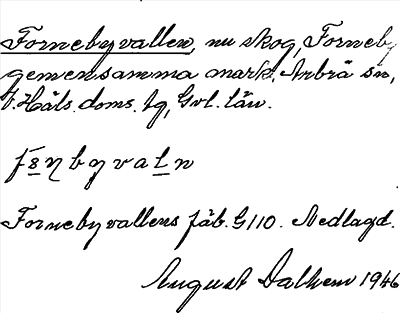 Fornebyvallen, nu skog, Forneby
gemensamma mark, Arbrå sn,
V. Häls. doms. tg, Gvl. län.
Fornebyvallens fäb. G110. Nedlagd.
August Dalhem 1946